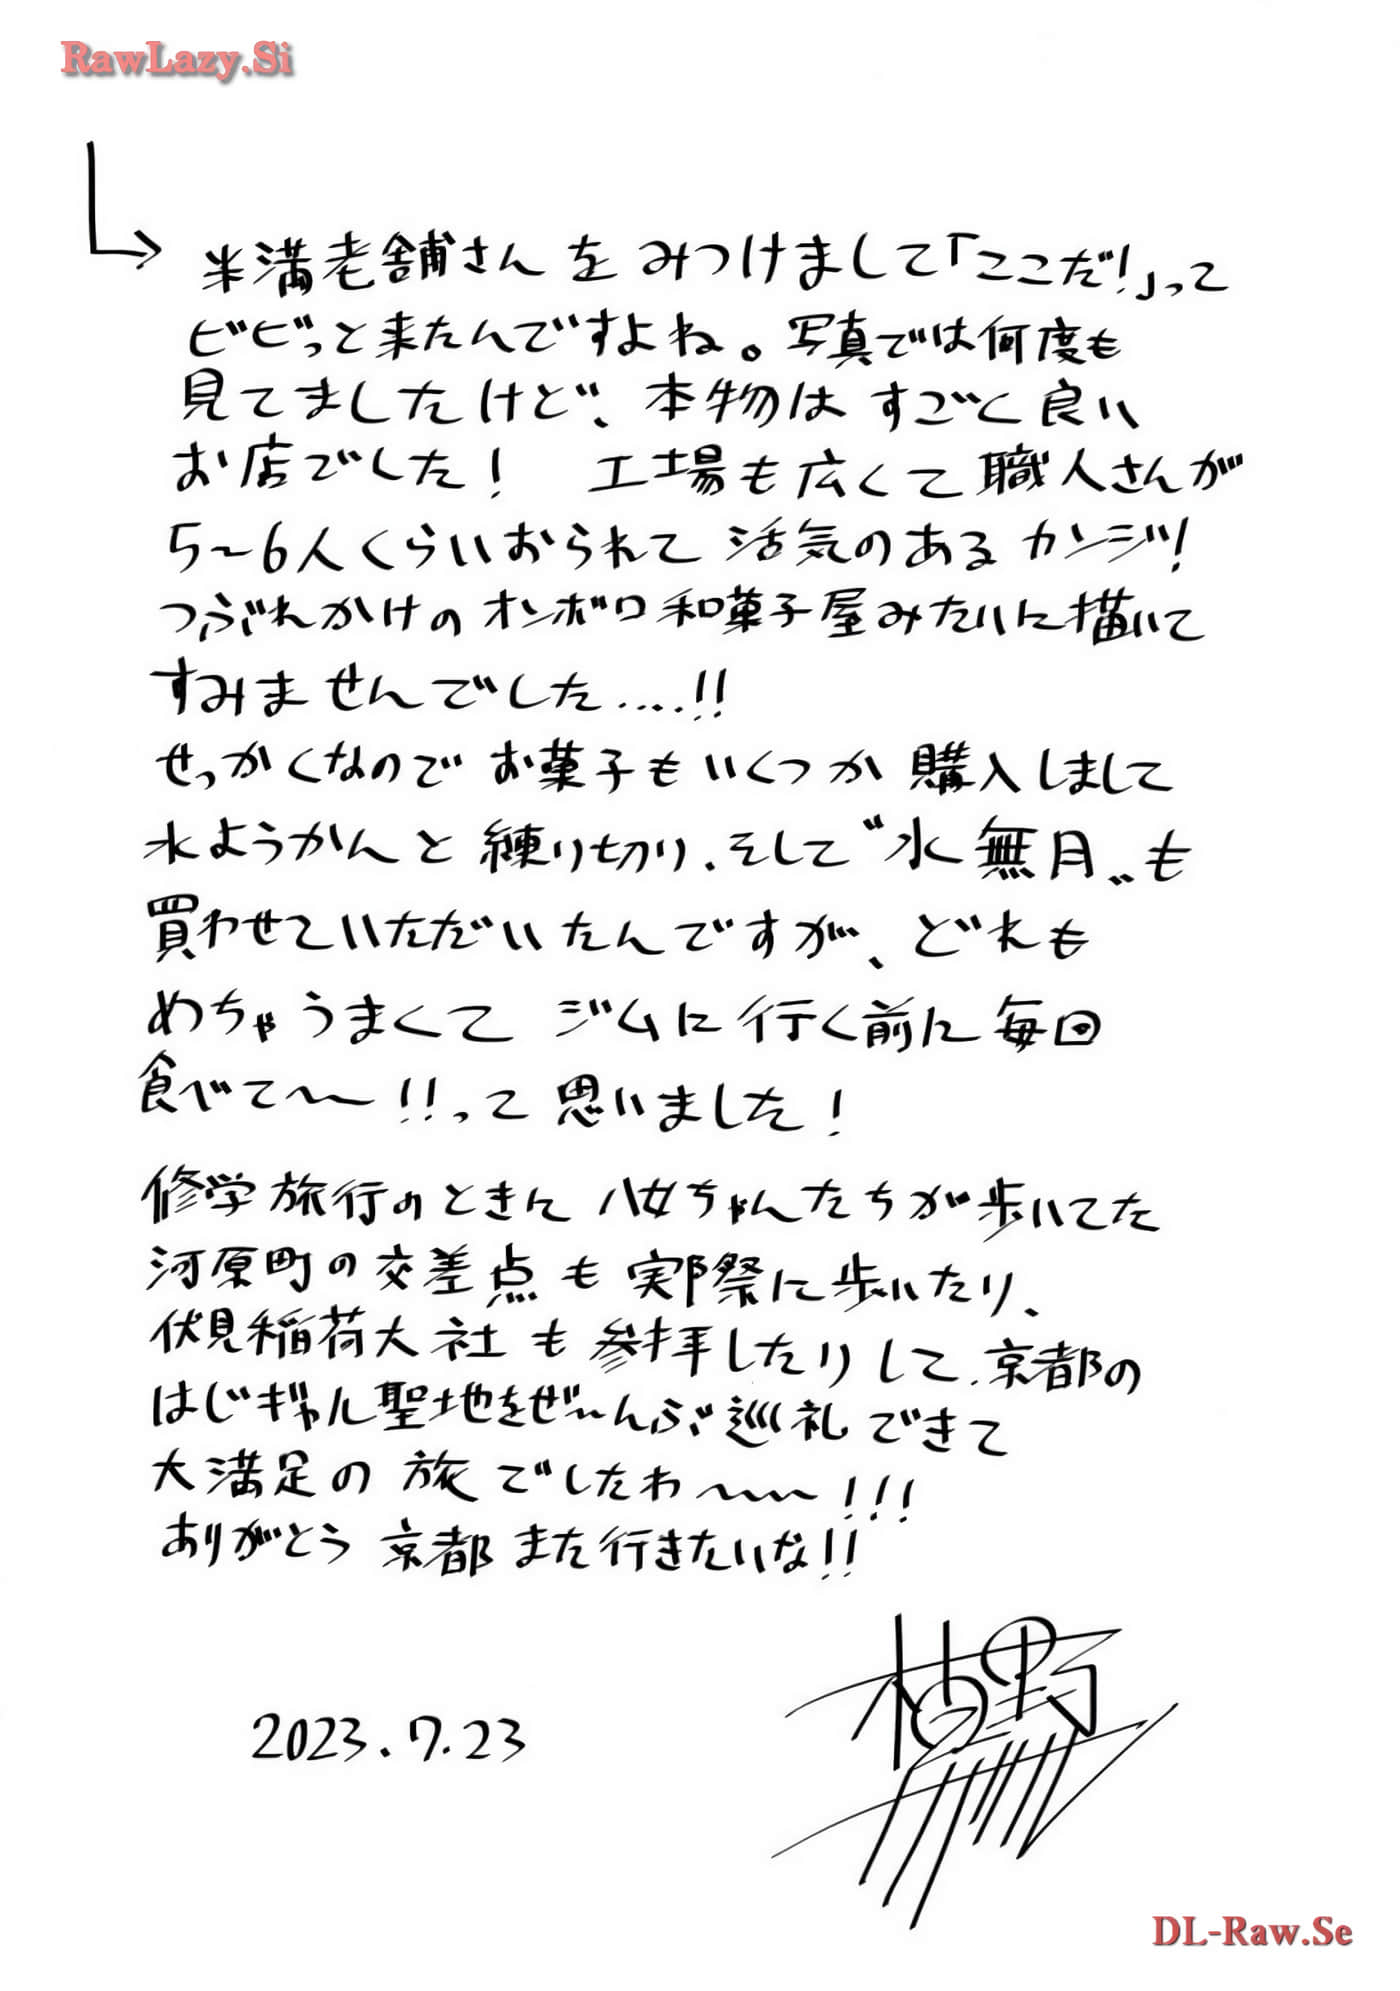 RawLazy.Si
半満老舗さんをみつけまして「ここだ!」って
ビビっと来たんですよね。写真では何度も
見てましたけど、本物はすごく良い
お店でした! 工場も広くて職人さんが
5〜6人くらいおられて活気のあるカンジ!
つぶれかけのオンボロ和菓子屋みたいに描いて
すみませんでした....!!
せっかくなのでお菓子もいくつか購入しまして
水ようかんと練り切り、そして〝水無月〟も
買わせていただいたんですが、どれも
めちゃうまくてジムに行く前に毎回
食べて〜〜!!って思いました!
修学旅行のときに八女ちゃんたちが歩いてた
河原町の交差点も実際に歩いたり、
伏見稲荷大社も参拝したりして、京都の
はじギャル聖地をぜ〜んぶ巡礼できて
大満足の旅でしたわ〜〜〜!!!
ありがとう京都また行きたいな!!
2023.7.23
DL-Raw.Se